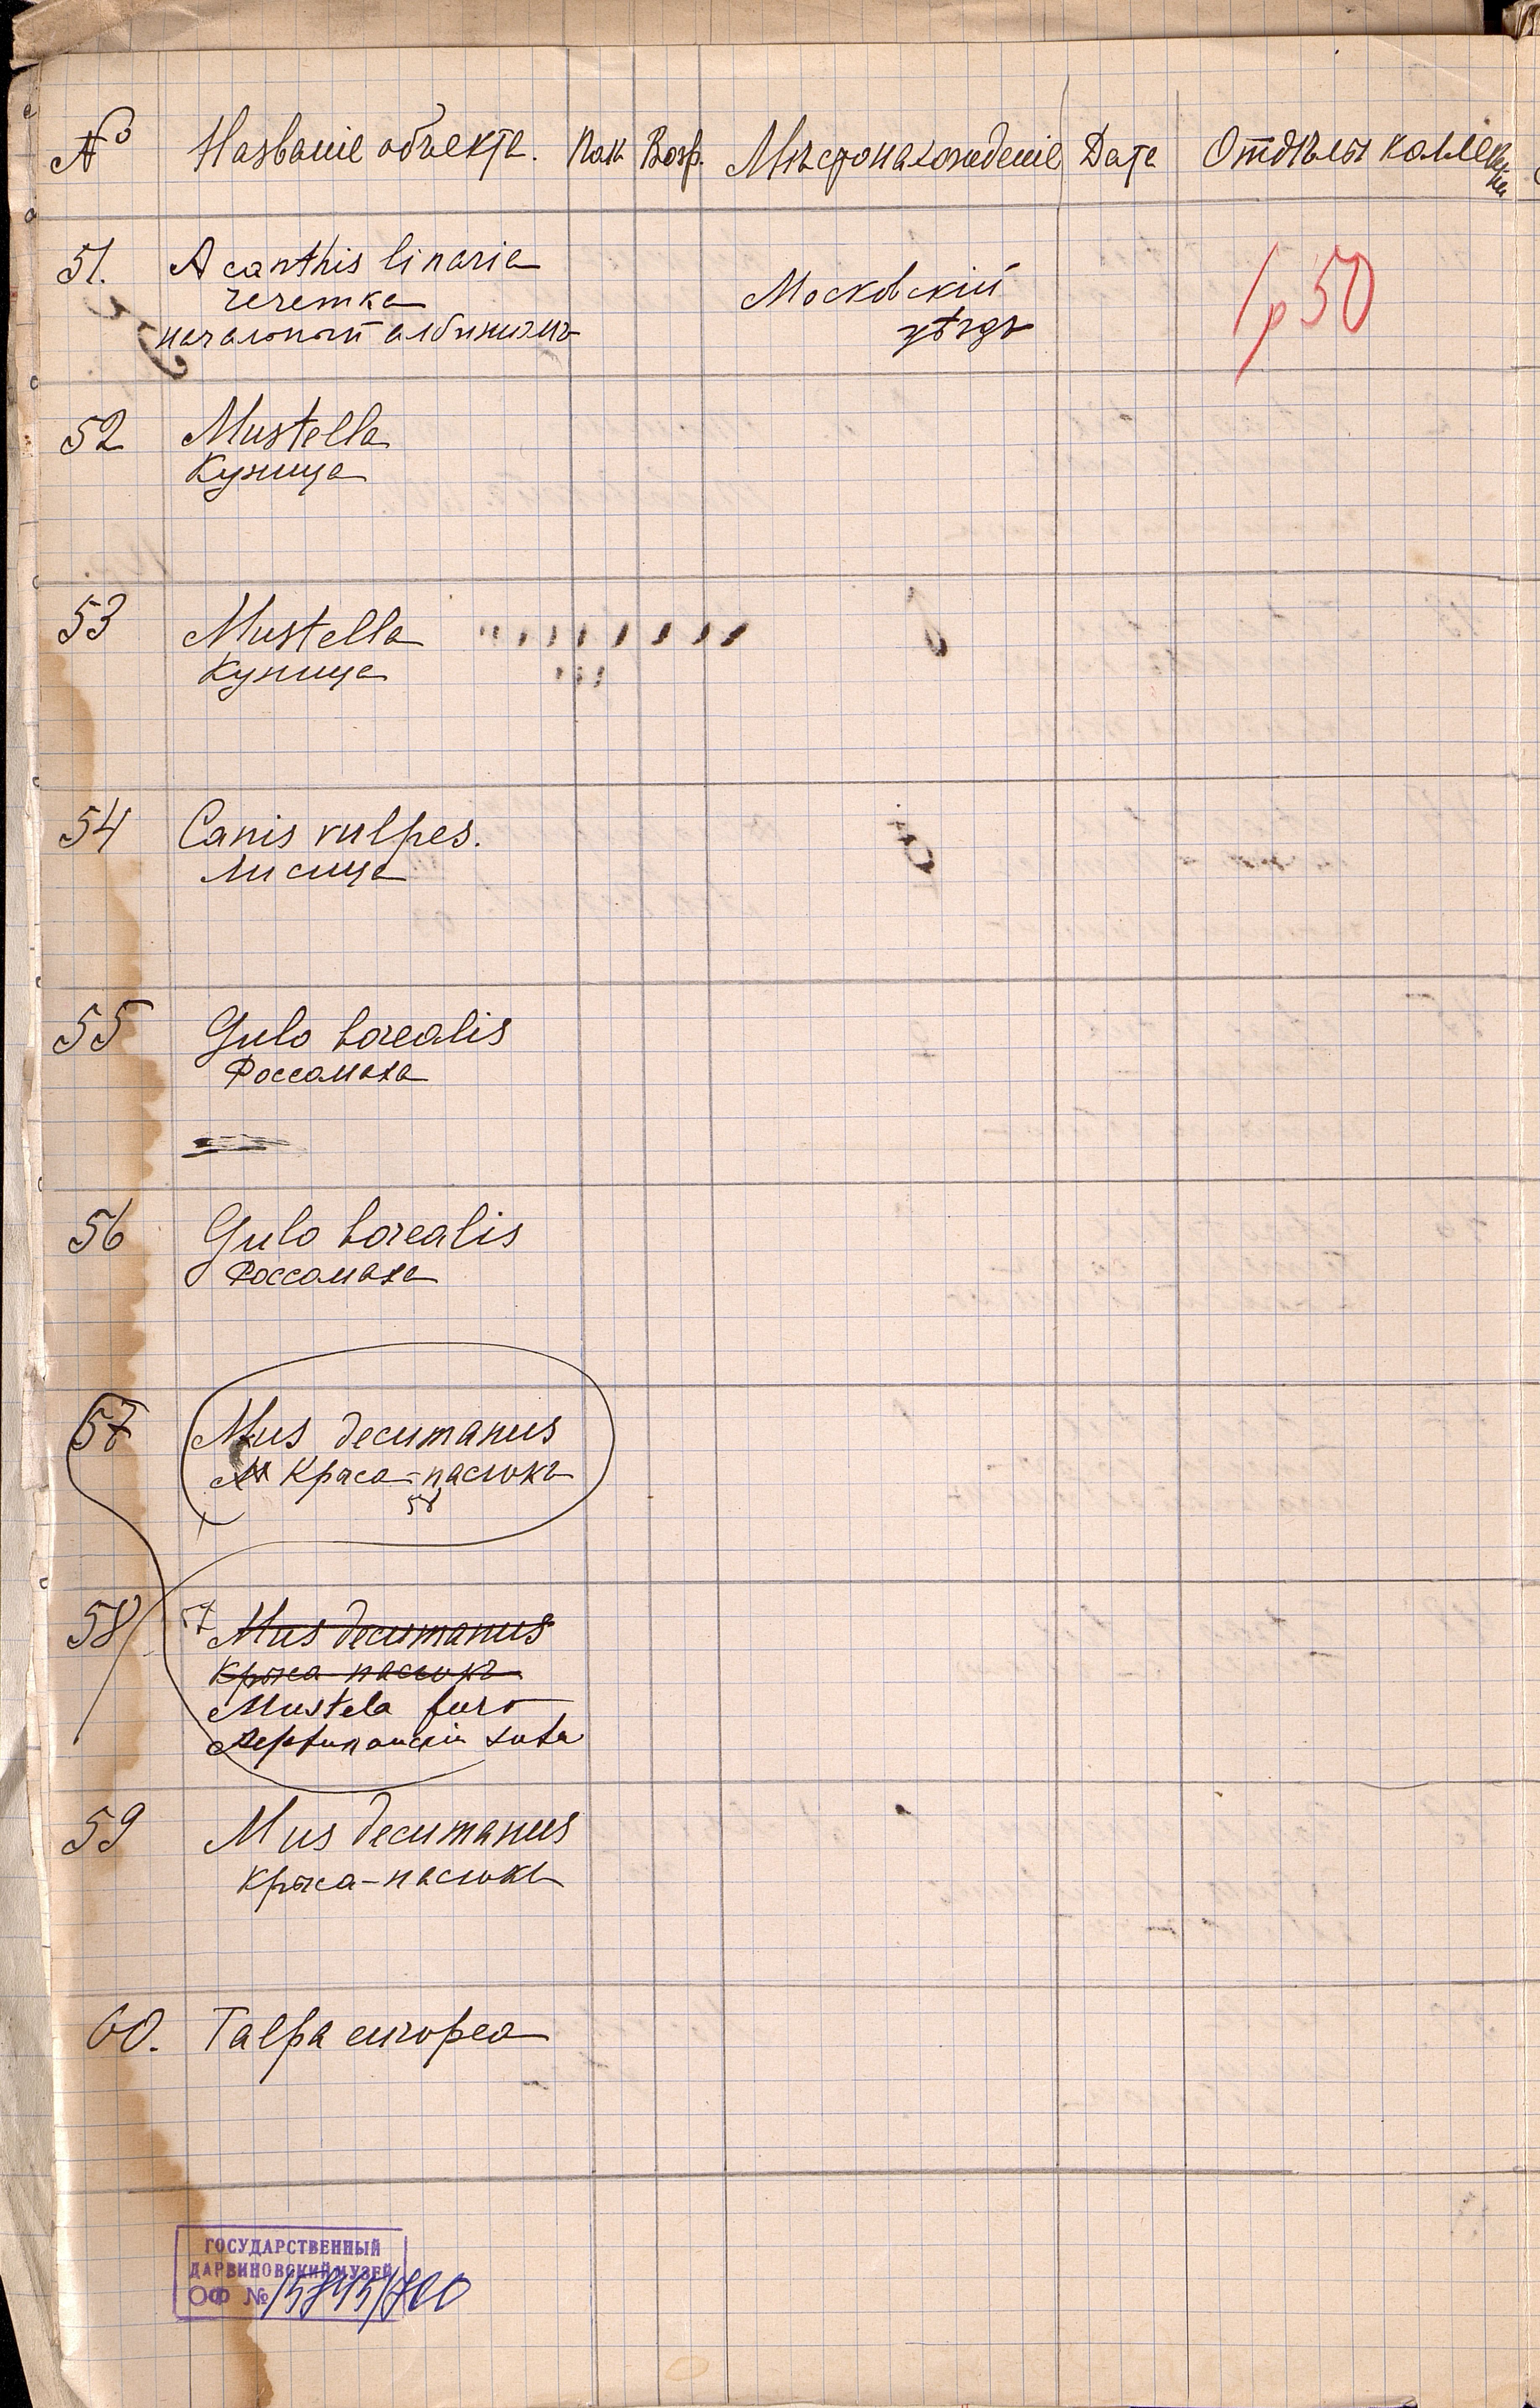 № Названіе объекта. Пол Возр. Мѣстонахожденіе Дата Отдѣлы коллекціи
51. Acanthis linaria
Чечетка
начальный альбинизмъ
Московскій
уѣздъ
1р 50
52 Mustella
Куница
53 Mustella
Куница
54 Canis vulpes.
Лисица
55 Gulo borealis
Россомаха
56 Gulo borealis
Россомаха
57 Mus decumanus
Крыса-пасюкъ
58
58 57 Mus decumanus
Крыса-пасюкъ
Mustela furo
59 Mus decumanus
Крыса-пасюкъ
60. Talpa europea
ГОСУДАРСТВЕННЫЙ
ДАРВИНОВСКИЙ МУЗЕЙ
ОФ №